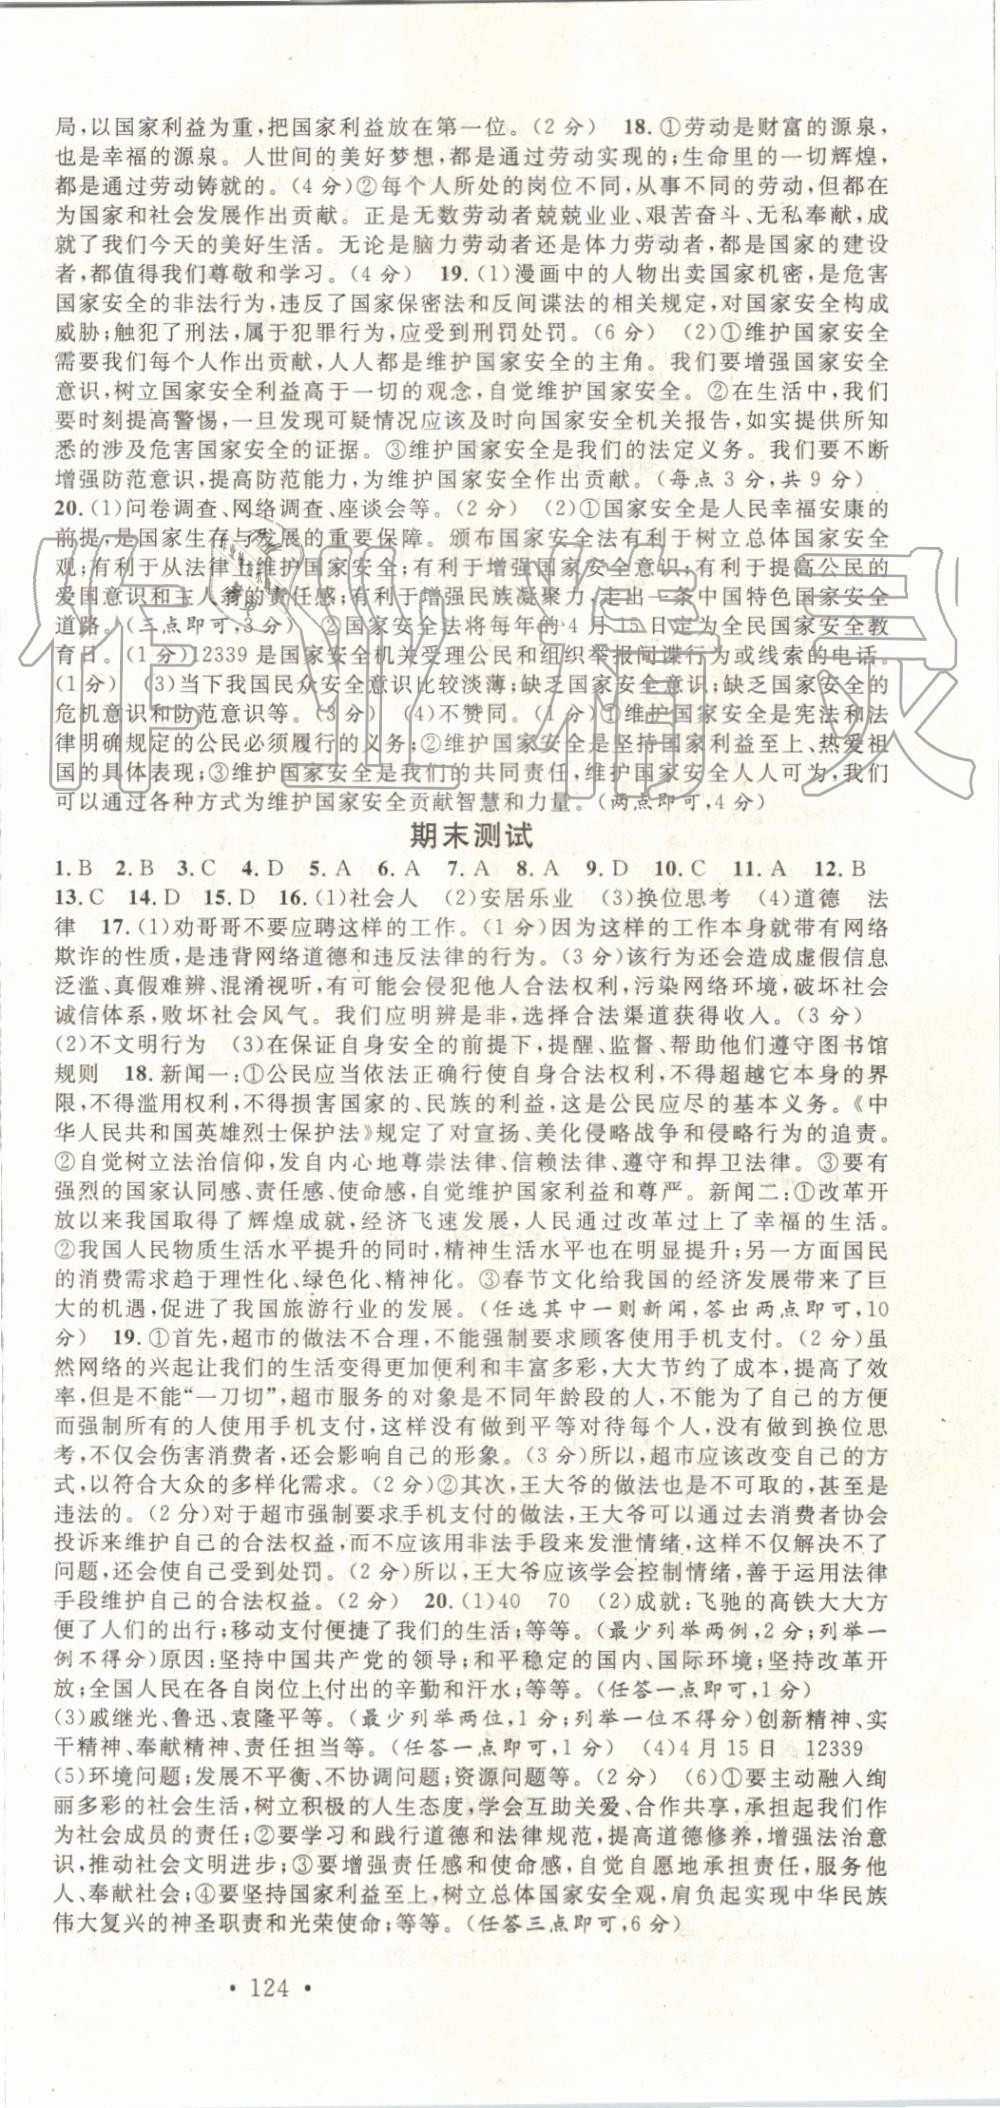 局,以国家利益为重,把国家利益放在第一位。(2 分) 18.①劳动是财富的源泉,
也是幸福的源泉。人世间的美好梦想,都是通过劳动实现的;生命里的一切辉煌,
都是通过劳动铸就的。(4 分)②每个人所处的岗位不同,从事不同的劳动,都在
为国家和社会发展作出贡献。正是无数劳动者兢兢业业、艰苦奋斗、无私奉献,成
就了我们今天的美好生活。无论是脑力劳动者还是体力劳动者,都是国家的建设
者,都值得我们尊敬和学习。(4 分) 19.(1)漫画中的人物出卖国家机密,是危害
国家安全的非法行为,违反了国家保密法和反间谍法的相关规定,对国家安全构成
威胁;触犯了刑法,属于犯罪行为,应受到刑罚处罚。(6 分) (2)①维护国家安全
需要我们每个人作出贡献,人人都是维护国家安全的主角。我们要增强国家安全
意识,树立国家安全利益高于一切的观念,自觉维护国家安全。②在生活中,我们
要时刻提高警惕,一旦发现可疑情况应该及时向国家安全机关报告,如实提供所知
悉的涉及危害国家安全的证据。③维护国家安全是我们的法定义务。我们要不断
增强防范意识,提高防范能力,为维护国家安全作出贡献。(每点 3 分,共 9 分)
20.(1)问卷调查、网络调查、座谈会等。(2 分) (2)①国家安全是人民幸福安康的
前提,是国家生存与发展的重要保障。颁布国家安全法有利于树立总体国家安全
观;有利于从法律上维护国家安全;有利于增强国家安全意识;有利于提高公民的
爱国意识和主人翁的责任感;有利于增强民族凝聚力,走出一条中国特色国家安全
道路。(三点即可,3 分) ②国家安全法将每年的 4 月 15 日定为全民国家安全教
育日。(1 分)12339 是国家安全机关受理公民和组织举报间谍行为或线索的电话。
(1 分) (3)当下我国民众安全意识比较淡薄;缺乏国家安全意识;缺乏国家安全的
危机意识和防范意识等。(3 分) (4)不赞同。(1 分)①维护国家安全是宪法和法
律明确规定的公民必须履行的义务;②维护国家安全是坚持国家利益至上、热爱祖
国的具体表现;③维护国家安全是我们的共同责任,维护国家安全人人可为,我们
可以通过各种方式为维护国家安全贡献智慧和力量。(两点即可,4 分)
期末测试
1. B 2. B 3. C 4. D 5. A 6. A 7. A 8. A 9. D 10. C 11. A 12. B
13. C 14. D 15. D 16.(1)社会人 (2)安居乐业 (3)换位思考 (4)道德 法
律 17.(1)劝哥哥不要应聘这样的工作。(1 分)因为这样的工作本身就带有网络
欺诈的性质,是违背网络道德和违反法律的行为。(3 分)该行为还会造成虚假信息
泛滥、真假难辨、混淆视听,有可能会侵犯他人合法权利,污染网络环境,破坏社会
诚信体系,败坏社会风气。我们应明辨是非,选择合法渠道获得收入。(3 分)
(2)不文明行为 (3)在保证自身安全的前提下,提醒、监督、帮助他们遵守图书馆
规则 18.新闻一:①公民应当依法正确行使自身合法权利,不得超越它本身的界
限,不得滥用权利,不得损害国家的、民族的利益,这是公民应尽的基本义务。《中
华人民共和国英雄烈士保护法》规定了对宣扬、美化侵略战争和侵略行为的追责。
②自觉树立法治信仰,发自内心地尊崇法律、信赖法律、遵守和捍卫法律。③要有
强烈的国家认同感、责任感、使命感,自觉维护国家利益和尊严。新闻二:①改革开
放以来我国取得了辉煌成就,经济飞速发展,人民通过改革过上了幸福的生活。
②我国人民物质生活水平提升的同时,精神生活水平也在明显提升;另一方面国民
的消费需求趋于理性化、绿色化、精神化。③春节文化给我国的经济发展带来了巨
大的机遇,促进了我国旅游行业的发展。(任选其中一则新闻,答出两点即可,10
分) 19.①首先,超市的做法不合理,不能强制要求顾客使用手机支付。(2 分)虽
然网络的兴起让我们的生活变得更加便利和丰富多彩,大大节约了成本,提高了效
率,但是不能“一刀切”,超市服务的对象是不同年龄段的人,不能为了自己的方便
而强制所有的人使用手机支付,这样没有做到平等对待每个人,没有做到换位思
考,不仅会伤害消费者,还会影响自己的形象。(3 分)所以,超市应该改变自己的方
式,以符合大众的多样化需求。(2 分)②其次,王大爷的做法也是不可取的,甚至是
违法的。(2 分)对于超市强制要求手机支付的做法,王大爷可以通过去消费者协会
投诉来维护自己的合法权益,而不应该用非法手段来发泄情绪,这样不仅解决不了
问题,还会使自己受到处罚。(2 分)所以,王大爷应该学会控制情绪,善于运用法律
手段维护自己的合法权益。(2 分) 20.(1)40 70 (2)成就:飞驰的高铁大大方
便了人们的出行;移动支付便捷了我们的生活;等等。(最少列举两例,2 分;列举一
例不得分)原因:坚持中国共产党的领导;和平稳定的国内、国际环境;坚持改革开
放;全国人民在各自岗位上付出的辛勤和汗水;等等。(任答一点即可,1 分)
(3)戚继光、鲁迅、袁隆平等。(最少列举两位,1 分;列举一位不得分)创新精神、实
干精神、奉献精神、责任担当等。(任答一点即可,1 分) (4)4 月 15 日 12339
(5)环境问题;发展不平衡、不协调问题;资源问题等。(2 分) (6)①要主动融入绚
丽多彩的社会生活,树立积极的人生态度,学会互助关爱、合作共享,承担起我们作
为社会成员的责任;②要学习和践行道德和法律规范,提高道德修养,增强法治意
识,推动社会文明进步;③要增强责任感和使命感,自觉自愿地承担责任,服务他
人、奉献社会;④要坚持国家利益至上,树立总体国家安全观,肩负起实现中华民族
伟大复兴的神圣职责和光荣使命;等等。(任答三点即可,6 分)
· 124 ·
作业精灵